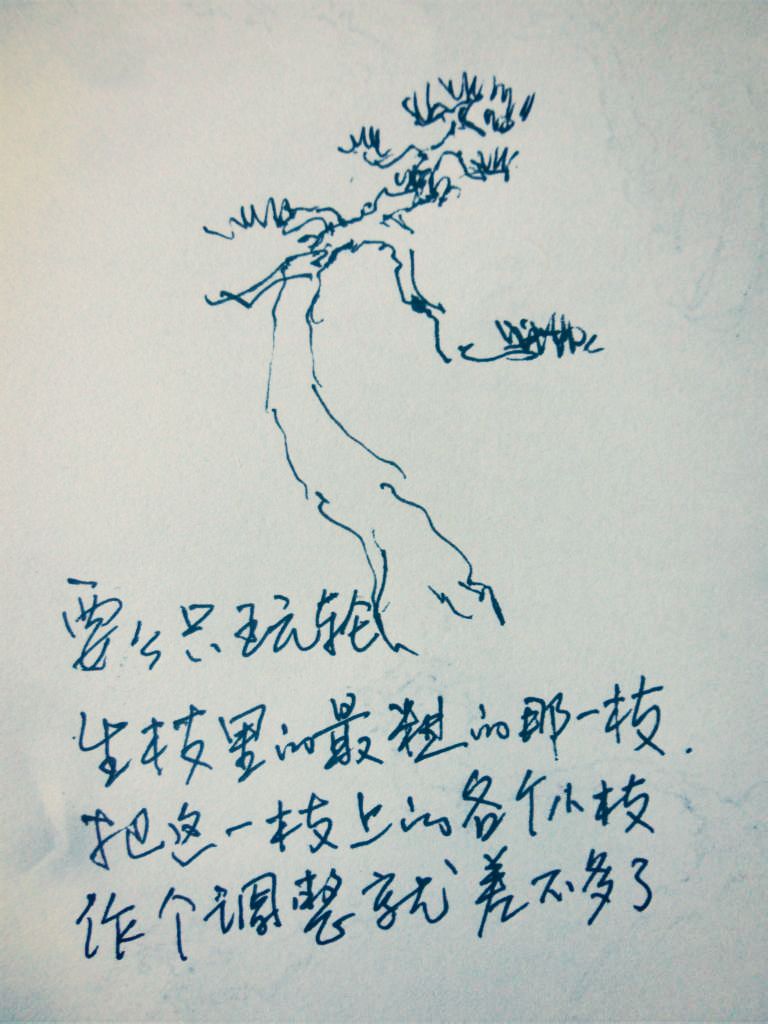 要么只玩轮
生枝里的最粗的那一枝.
把这一枝上的各个小枝
作个调整就差不多了